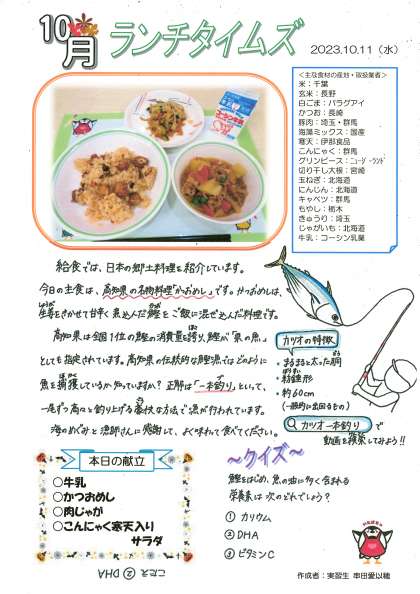 10月 ランチタイムズ
2023.10.11（水）
＜主な食材の産地・取扱業者＞
米：千葉
玄米：長野
白ごま：パラグアイ
かつお：長崎
豚肉：埼玉・群馬
海藻ミックス：国産
寒天：伊那食品
こんにゃく：群馬
グリンピース：ニュージーランド
切り干し大根：宮崎
玉ねぎ：北海道
にんじん：北海道
キャベツ：群馬
もやし：栃木
きゅうり：埼玉
じゃがいも：北海道
牛乳：コーシン乳業
給食では、日本の郷土料理を紹介しています。
今日の主食は、高知県の名物料理"かつおめし"です。かつおめしは、
生姜をきかせて甘辛く煮込んだ鰹をご飯に混ぜ込んだ料理です。
高知県は全国1位の鰹の消費量を誇り、鰹が「県の魚」
としても指定されています。高知県の伝統的な鰹漁ではどのように
魚を捕獲しているか知っていますか？正解は「一本釣り」といって、
一尾ずつ高々と釣り上げる豪快な方法で漁が行われています。
海のめぐみと漁師さんに感謝して、よく味わって食べてください。
カツオの特徴
・まるまると太った胴
・紡錘形
・約60cm
（一般的に出回るもの）
カツオ一本釣り で
動画を検索してみよう！！
本日の献立
○牛乳
○かつおめし
○肉じゃが
○こんにゃく寒天入り
サラダ
～クイズ～
鰹をはじめ、魚の油に多く含まれる
栄養素は次のどれでしょう？
① カリウム
② DHA
③ ビタミンC
こたえ ② DHA
作成者：実習生 串田愛以穂